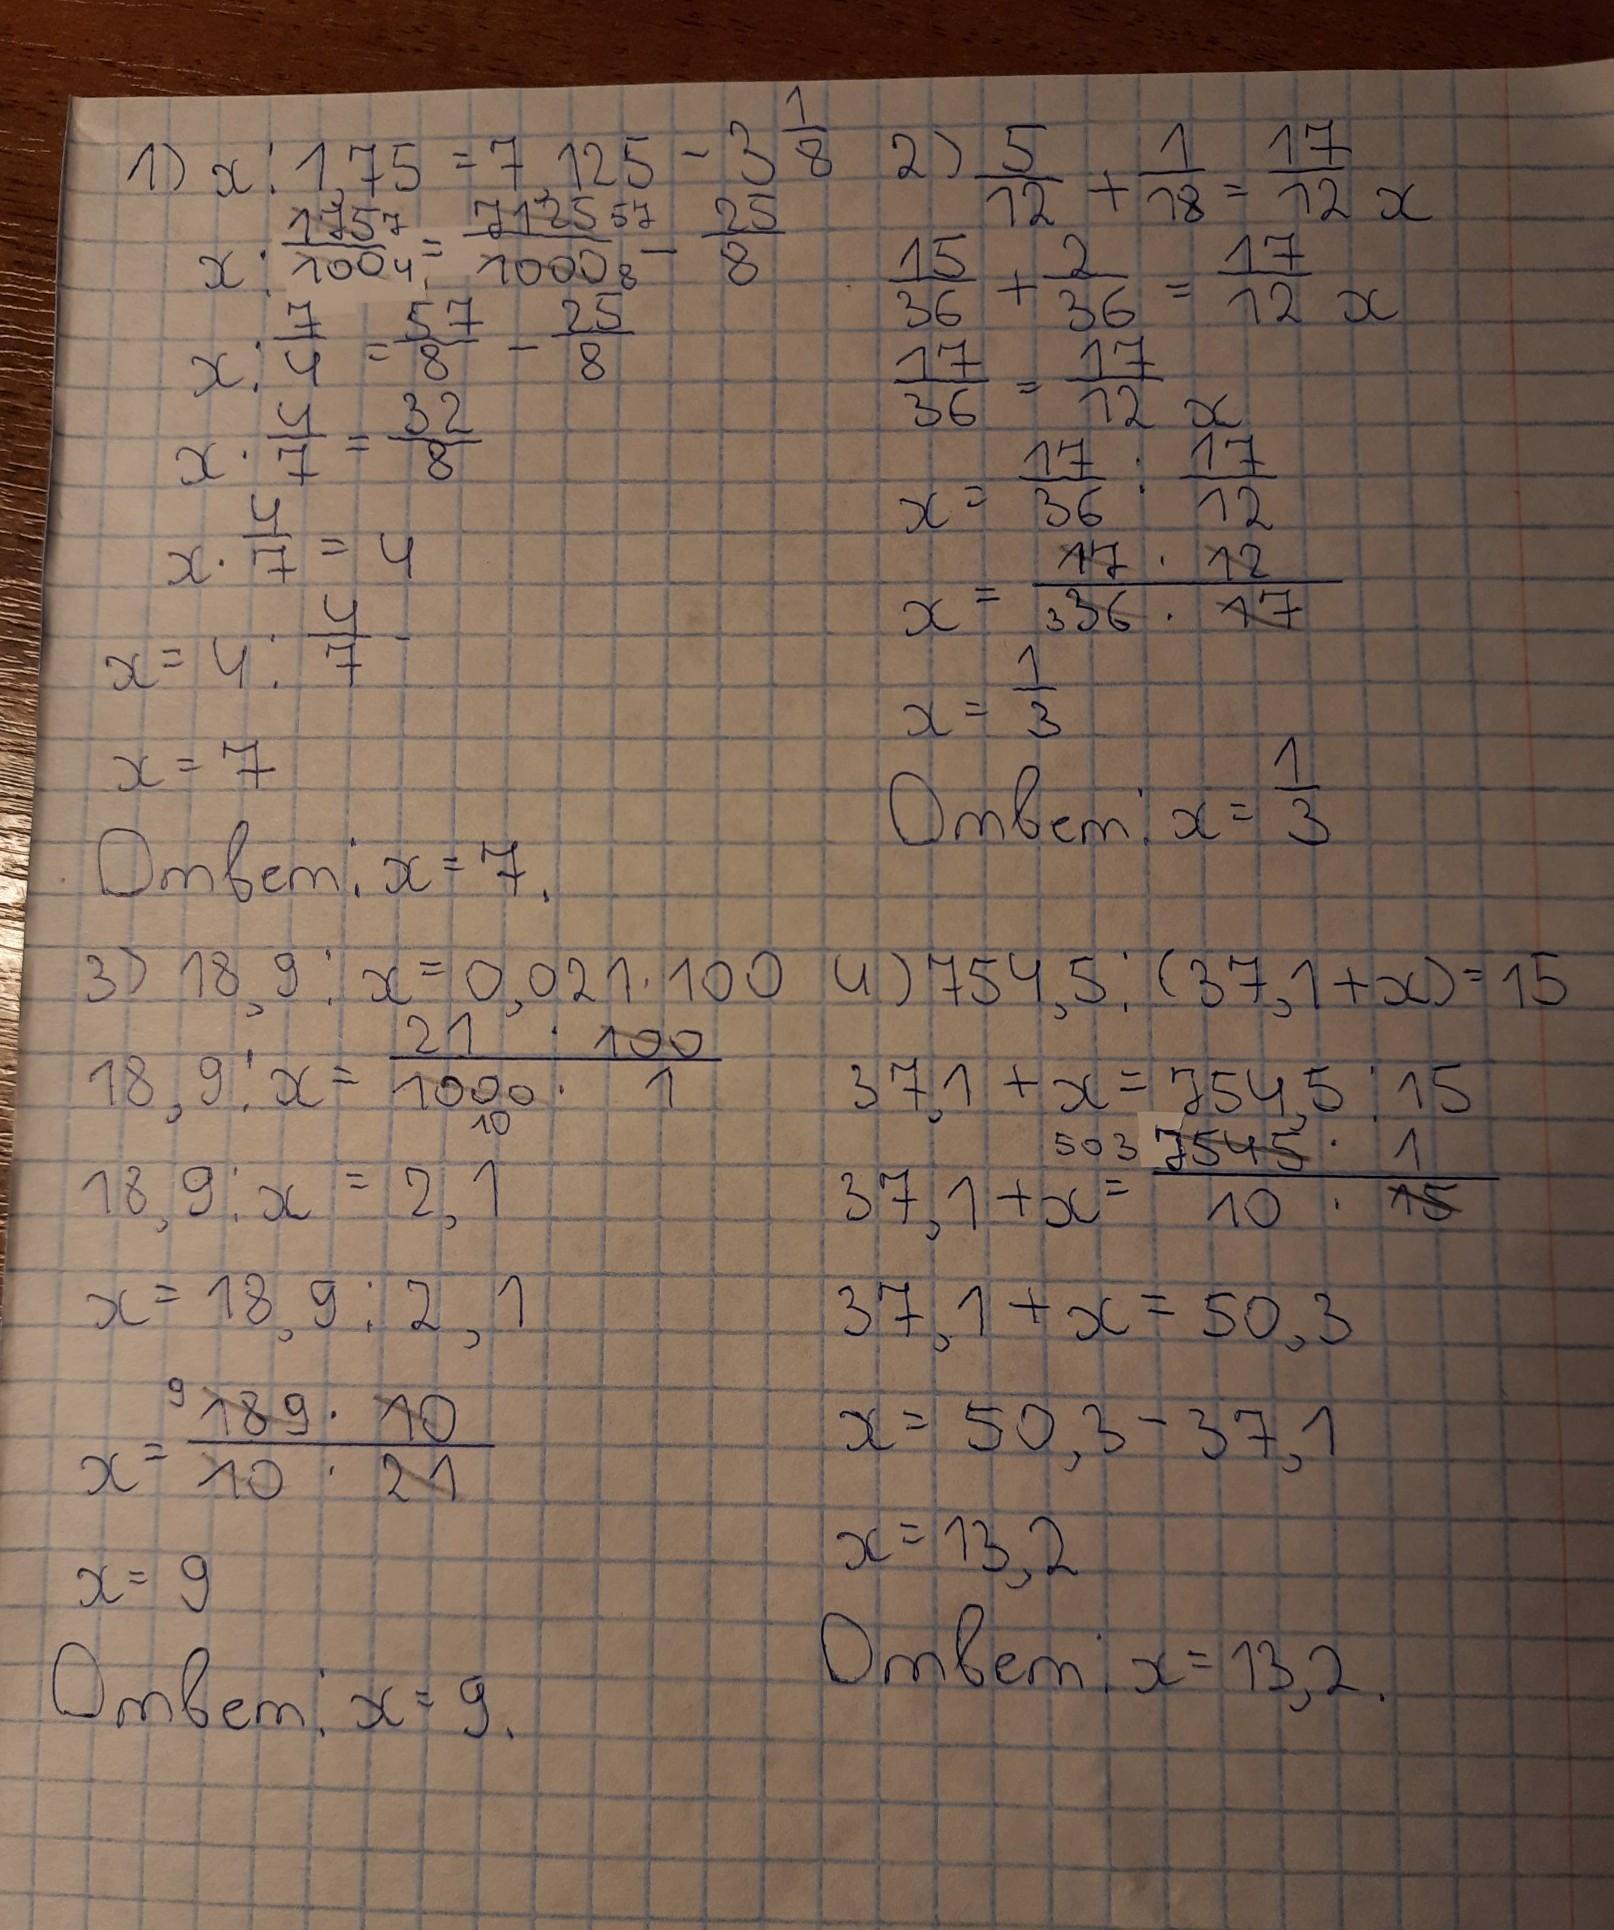 1) x : 1,75 = 7,125 - 3 1/8
x : 1757/1004 = 7125 57/1000 8 - 25/8
x : 7/4 = 57/8 - 25/8
x · 4/7 = 32/8
x · 4/7 = 4
x = 4 : 4/7
x = 7
Ответ: x = 7.
2) 5/12 + 1/18 = 17/12 x
15/36 + 2/36 = 17/12 x
17/36 = 17/12 x
x = 17/36 : 17/12
x = 17 · 12 / 3 36 · 17
x = 1/3
Ответ: x = 1/3
3) 18,9 : x = 0,021 · 100
18,9 : x = 21 · 100 / 1000 · 1
10
18,9 : x = 2,1
x = 18,9 : 2,1
x = 9 189 · 10 / 10 · 21
x = 9
Ответ: x = 9.
4) 754,5 : (37,1 + x) = 15
37,1 + x = 754,5 : 15
37,1 + x = 503 7545 · 1 / 10 · 15
37,1 + x = 50,3
x = 50,3 - 37,1
x = 13,2
Ответ: x = 13,2.